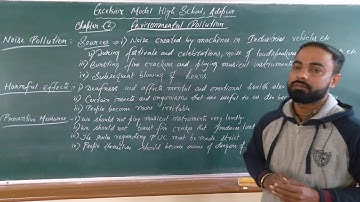 Excelsior Model High School, Adipur
Chapter 6 Environmental Pollution
Noise Pollution : Sources → i) Noise created by machines in Industries vehicle etc
ii) During festivals and celebrations, noise of loudspeakers
iii) Bursting fire crackers and playing musical instruments
iv) Subsequent blowing of horns
Harmful effects : i) Deafness and affects mental and emotional health also
ii) Certain insects and organisms that are useful to us die because
iii) People become more irritable
Preventive Measures : i) We should not play musical instruments very loudly
ii) We should not burst fire crackers that produce loud
iii) The rules regarding PUC must be made strict
iv) People themselves should become aware of dangers of